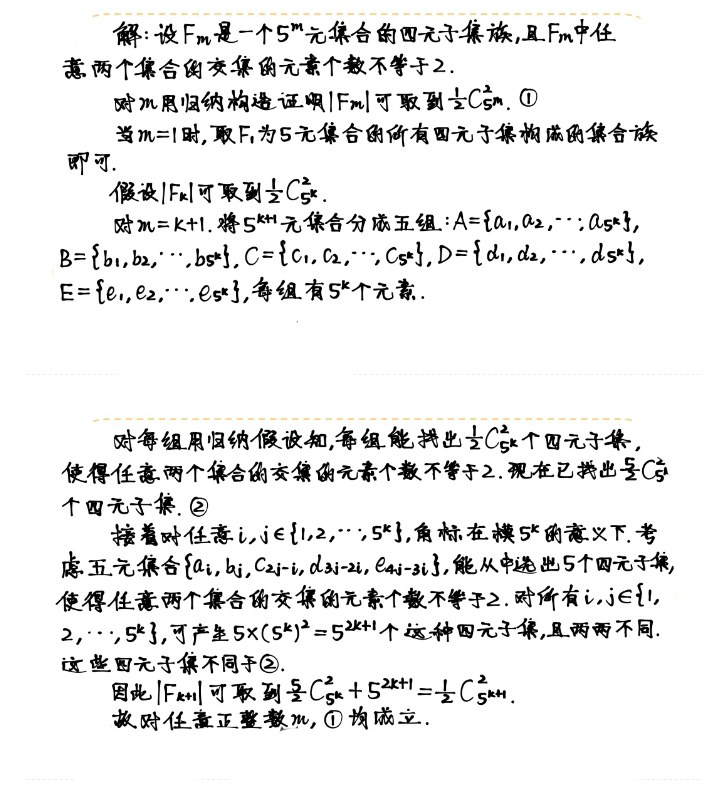 解:设Fₘ是一个5ᵐ元集合的四元子集族,且Fₘ中任
意两个集合的交集的元素个数不等于2.
对m用归纳构造证明|Fₘ|可取到½C²₅ᵐ. ①
当m=1时,取F₁为5元集合的所有四元子集构成的集合族
即可.
假设|Fₖ|可取到½C²₅ᵏ.
对m=k+1.将5ᵏ⁺¹元集合分成五组:A={a₁,a₂,⋯,a₅ᵏ},
B={b₁,b₂,⋯,b₅ᵏ},C={c₁,c₂,⋯,c₅ᵏ},D={d₁,d₂,⋯,d₅ᵏ},
E={e₁,e₂,⋯,e₅ᵏ},每组有5ᵏ个元素.
对每组用归纳假设知,每组能找出½C²₅ᵏ个四元子集,
使得任意两个集合的交集的元素个数不等于2.现在已找出5/2C²₅ᵏ
个四元子集.②
接着对任意i,j∈{1,2,⋯,5ᵏ},角标在模5ᵏ的意义下.考
虑五元集合{aᵢ,bⱼ,c₂ⱼ₋ᵢ,d₃ⱼ₋₂ᵢ,e₄ⱼ₋₃ᵢ},能从中选出5个四元子集,
使得任意两个集合的交集的元素个数不等于2.对所有i,j∈{1,
2,⋯,5ᵏ},可产生5×(5ᵏ)²=5²ᵏ⁺¹个这种四元子集,且两两不同.
这些四元子集不同于②.
因此|Fₖ₊₁|可取到5/2C²₅ᵏ+5²ᵏ⁺¹=½C²₅ᵏ⁺¹.
故对任意正整数m,①均成立.